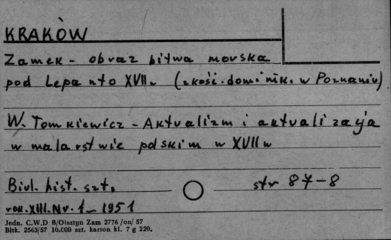 KRAKÓW
Zamek - obraz bitwa morska
pod Lepanto XVII w (z kośc. dominik. w Poznaniu)
W. Tomkiewicz - Aktualizm i aktualizacja
w malarstwie polskim w XVII w
Biul. hist. szt. str 87-8
rok. XIII. Nr. 1 - 1951
Jedn. C.W.D 8/Olsztyn Zam 2776 /on/ 57
Blbk. 2563/57 10.000 szt. karton kl. 7 g 220.